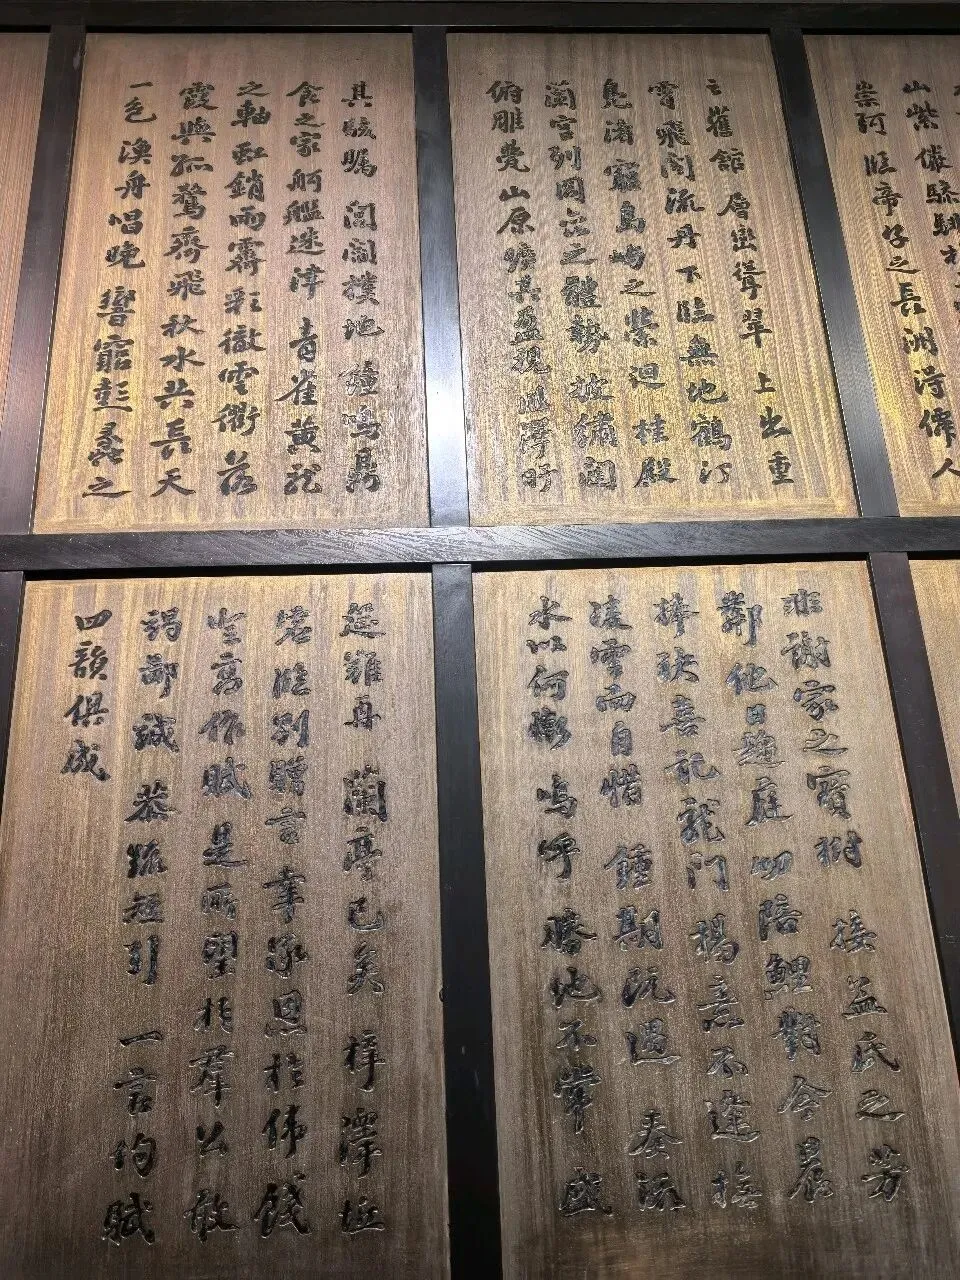 山紫儼驂騑於
崇阿臨帝子之長洲得僊人
之舊館層巒聳翠上出重
霄飛閣流丹下臨無地鶴汀
鳧渚窮島嶼之縈迴桂殿
蘭宮列岡巒之體勢披繡闥
俯雕甍山原曠其盈視川澤盱
其駭矚閭閻撲地鐘鳴鼎
食之家舸艦迷津青雀黃龍
之軸虹銷雨霽彩徹雲衢落
霞與孤鶩齊飛秋水共長天
一色漁舟唱晚響窮彭蠡之
非謝家之寶樹接孟氏之芳
鄰他日趨庭叨陪鯉對今晨
捧袂喜託龍門楊意不逢撫
凌雲而自惜鍾期既遇奏流
水以何慚嗚呼勝地不常盛
筵難再蘭亭已矣梓澤坵
墟臨別贈言幸承恩於偉餞
登高作賦是所望於羣公敢
竭鄙誠恭疏短引一言均賦
四韻俱成